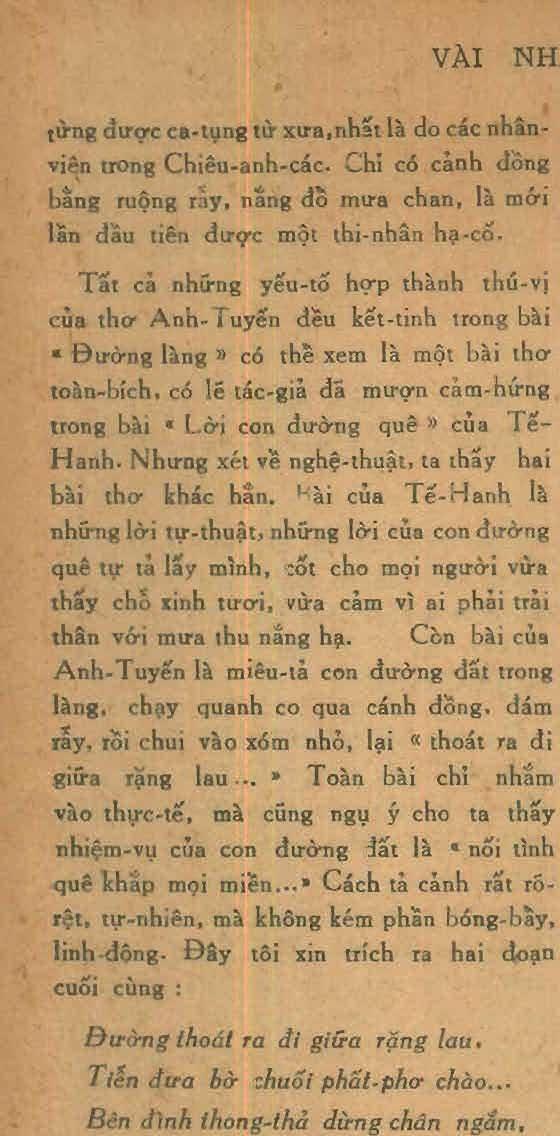 VÀI NH
từng được ca-tụng từ xưa, nhất là do các nhân-
viện trong Chiêu-anh-các. Chỉ có cảnh đồng
bằng ruộng rẫy, nắng đổ mưa chan, là mới
lần đầu tiên được một thi-nhân hạ-cố.
Tất cả những yếu-tố hợp thành thú-vị
của thơ Anh-Tuyến đều kết-tinh trong bài
« Đường làng » có thể xem là một bài thơ
toàn-bích, có lẽ tác-giả đã mượn cảm-hứng
trong bài « Lời con đường quê » của Tế-
Hanh. Nhưng xét về nghệ-thuật, ta thấy hai
bài thơ khác hẳn. Bài của Tế-Hanh là
những lời tự-thuật, những lời của con đường
quê tự tả lấy mình, cốt cho mọi người vừa
thấy chỗ xinh tươi, vừa cảm vì ai phải trải
thân với mưa thu nắng hạ. Còn bài của
Anh-Tuyến là miêu-tả con đường đất trong
làng, chạy quanh co qua cánh đồng, đám
rẫy, rồi chui vào xóm nhỏ, lại « thoát ra đi
giữa rặng lau... » Toàn bài chỉ nhắm
vào thực-tế, mà cũng ngụ ý cho ta thấy
nhiệm-vụ của con đường đất là « nối tình
quê khắp mọi miền...» Cách tả cảnh rất rõ-
rệt, tự-nhiên, mà không kém phần bóng-bẩy,
linh-động. Đây tôi xin trích ra hai đoạn
cuối cùng :
Đường thoát ra đi giữa rặng lau,
Tiễn đưa bờ chuối phất-phơ chào...
Bên đình thong-thả dừng chân ngắm,